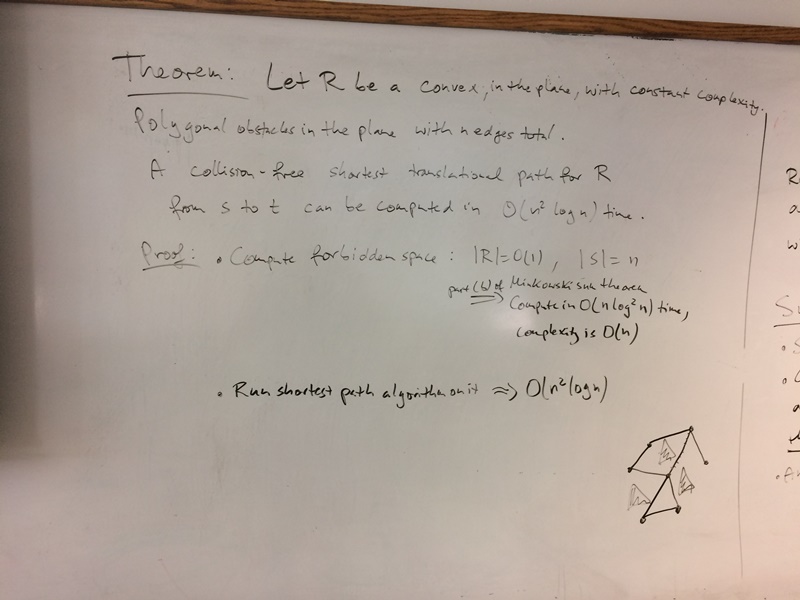 Theorem: Let R be a convex, in the plane, with constant complexity.
Polygonal obstacles in the plane with n edges total.
A collision-free shortest translational path for R
from s to t can be computed in O(n² log n) time.
Proof: • Compute forbidden space: |R|=O(1), |S|=n
part (b) of Minkowski sum theorem
⇒ Compute in O(n log² n) time,
complexity is O(n)
• Run shortest path algorithm on it ⇒ O(n² log n)
R
a
w
S
•
•
a
•